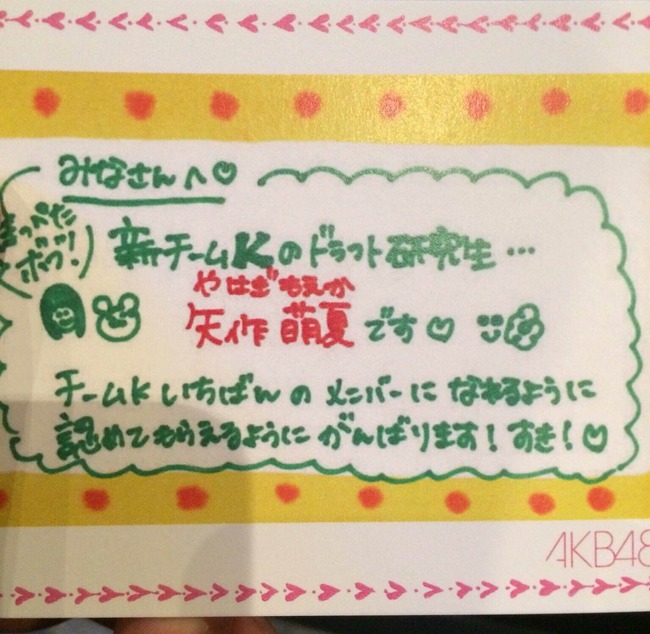 みなさんへ♡
新チームKのドラフト研究生…
やはぎもえか
矢作萌夏です♡
チームKいちばんのメンバーになれるように
認めてもらえるようにがんばります！すき！♡
AKB48